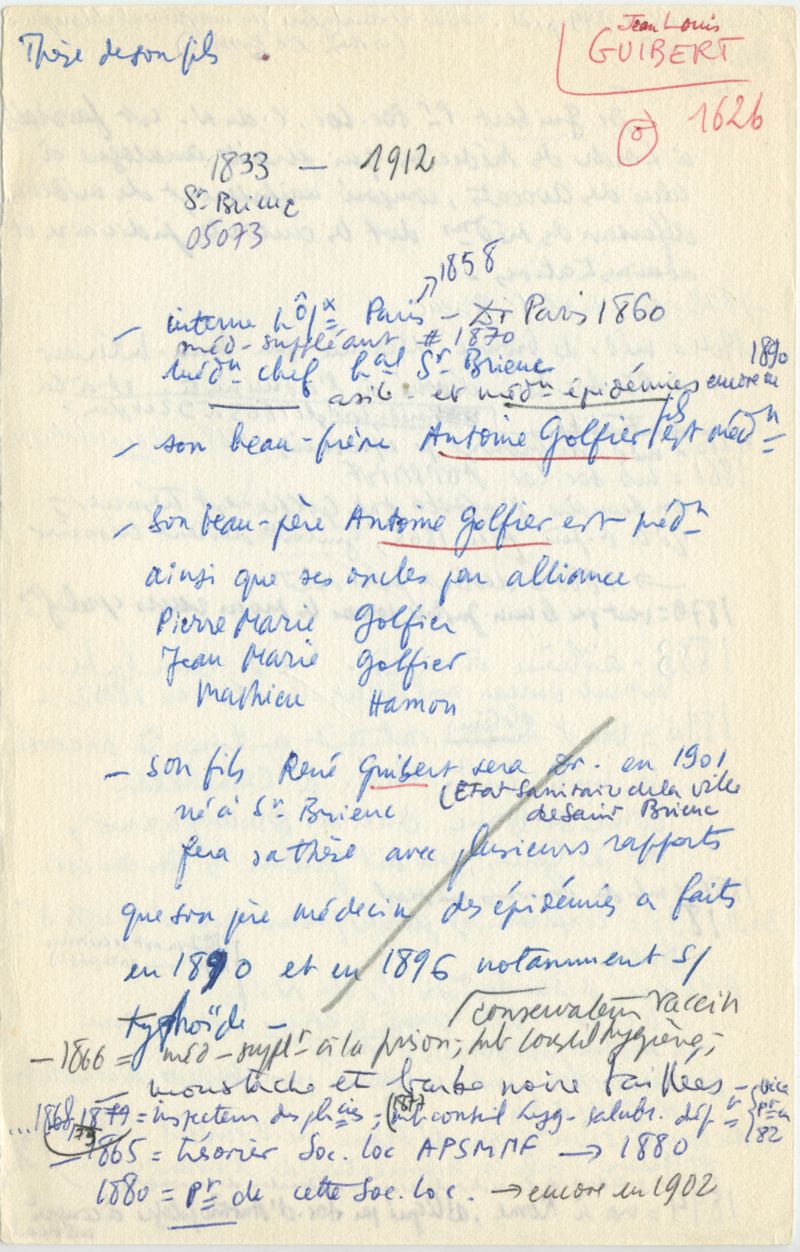 Thèse de son fils
Jean Louis
GUIBERT
1626
1833 — 1912
St Brieuc
05073
1858
– interne hôpx Paris – Dr Paris 1860
méd-suppléant # 1870
médn chef hal St Brieuc
1890
asile - et médn épidémies encore en
– son beau-frère Antoine Golfier fils est médn
– Son beau-père Antoine Golfier est médn
ainsi que ses oncles par alliance
Pierre Marie Golfier
Jean Marie Golfier
Mathieu Hamon
– son fils René Guibert sera Dr. en 1901
(Etat sanitaire de la ville
né à St Brieuc de Saint Brieuc
fera sa thèse avec plusieurs rapports
que son père médecin des épidémies a faits
en 1890 et en 1896 notamment s/
typhoïde –
conservateur vaccin
– 1866 = méd-supplt à la prison; mb conseil hygiène;
– moustache et barbe noire taillées –
...1868, 1879 = inspecteur des phcies; 1877 mb conseil hyg-salubr. dép
79
vice
pt en
82
– 1865 = trésorier Soc. loc APSMMF → 1880
1880 = pt de cette Soc. loc. → encore en 1902